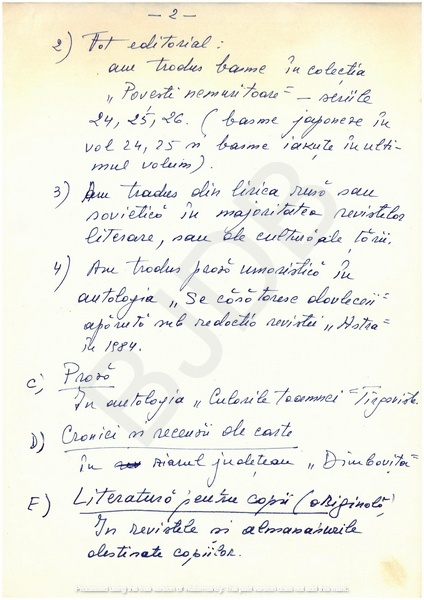 — 2 —
2) Tot editorial:
am tradus basme în colecția
„Povești nemuritoare" – seriile
24, 25, 26. (basme japoneze în
vol 24, 25 și basme iakute în ulti-
mul volum).
3) Am tradus din lirica rusă sau
sovietică în majoritatea revistelor
literare, sau de cultură ale țării.
4) Am tradus proză umoristică în
antologia „Se căsătoresc dovlecii"
apărută sub redacția revistei „Astra"
în 1984.
C) Proză
În antologia „Culorile toamnei" Tîrgoviște
D) Cronici și recenzii de carte
în ziarul județean „Dîmbovița"
E) Literatură pentru copii (originală)
În revistele și almanahurile
destinate copiilor.
BJDB
Processed using the free version of Watermarkly. The paid version does not add this mark.